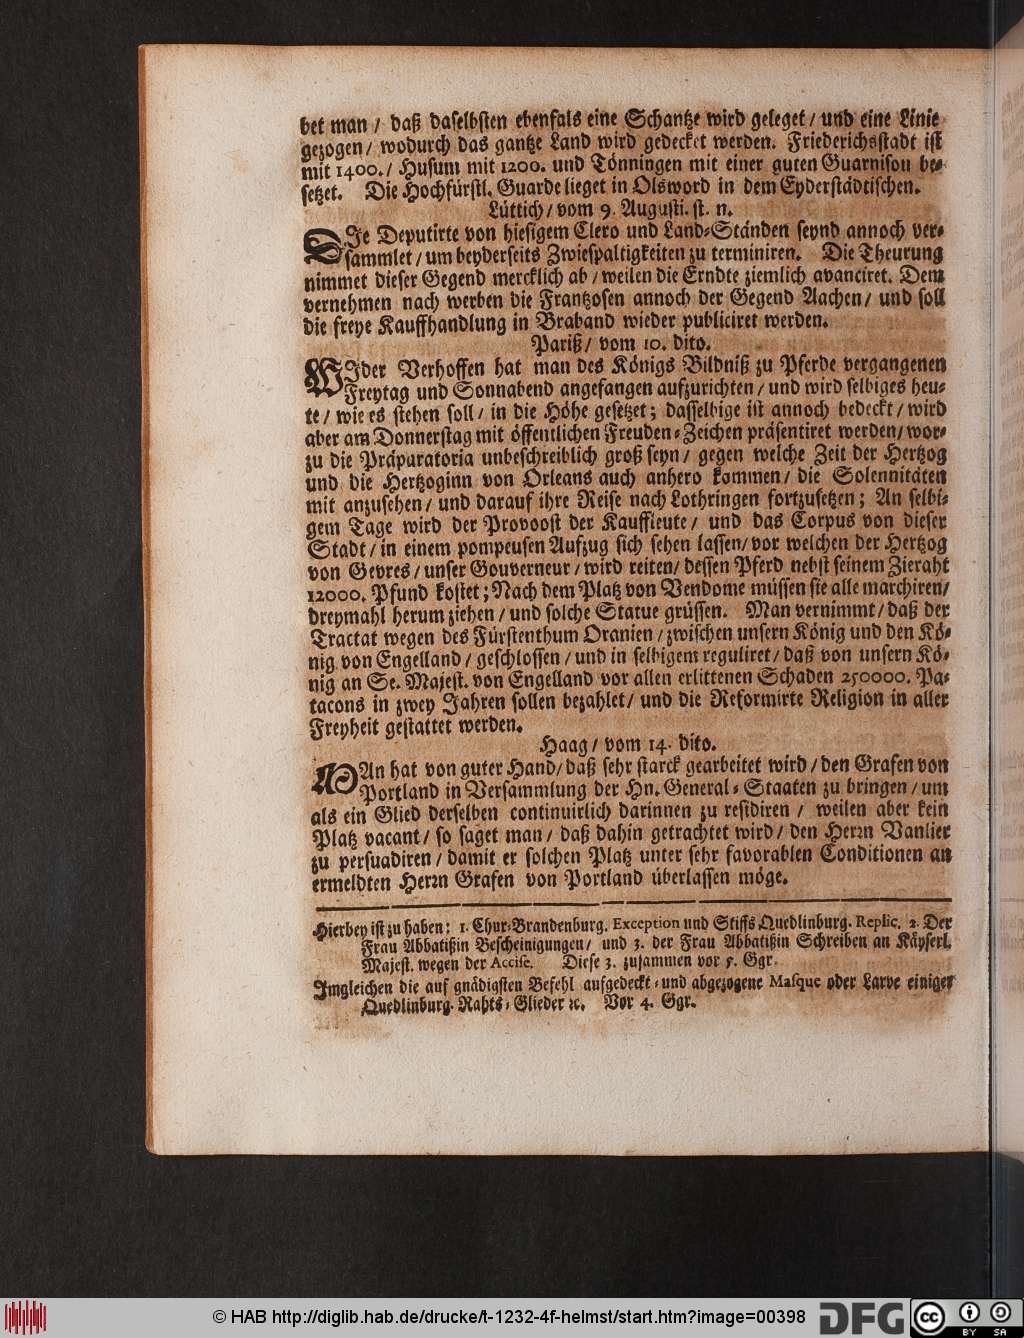 bet man / daß daselbsten ebenfals eine Schantze wird geleget / und eine Linie
gezogen / wodurch das gantze Land wird gedecket werden. Friederichsstadt ist
mit 1400. / Husum mit 1200. und Tönningen mit einer guten Guarnison be-
setzet. Die Hochfürstl. Guarde lieget in Olsword in dem Eyderstädtischen.
Lüttich / vom 9. Augusti. st. n.
DIe Deputirte von hiesigem Clero und Land-Ständen seynd annoch ver-
sammlet / um beyderseits Zwiespaltigkeiten zu terminiren. Die Theurung
nimmet dieser Gegend mercklich ab / weilen die Erndte ziemlich avanciret. Dem
vernehmen nach werben die Frantzosen annoch der Gegend Aachen / und soll
die freye Kauffhandlung in Braband wieder publiciret werden.
Pariß / vom 10. dito.
WIder Verhoffen hat man des Königs Bildniß zu Pferde vergangenen
Freytag und Sonnabend angefangen aufzurichten / und wird selbiges heu-
te / wie es stehen soll / in die Höhe gesetzet; dasselbige ist annoch bedeckt / wird
aber am Donnerstag mit öffentlichen Freuden-Zeichen präsentiret werden / wor-
zu die Präparatoria unbeschreiblich groß seyn / gegen welche Zeit der Hertzog
und die Hertzoginn von Orleans auch anhero kommen / die Solennitäten
mit anzusehen / und darauf ihre Reise nach Lothringen fortzusetzen; An selbi-
gem Tage wird der Provoost der Kauffleute / und das Corpus von dieser
Stadt / in einem pompeusen Aufzug sich sehen lassen / vor welchen der Hertzog
von Gevres / unser Gouverneur / wird reiten / dessen Pferd nebst seinem Zieraht
12000. Pfund kostet; Nach dem Platz von Vendome müssen sie alle marchiren /
dreymahl herum ziehen / und solche Statue grüssen. Man vernimmt / daß der
Tractat wegen des Fürstenthum Oranien / zwischen unsern König und den Kö-
nig von Engelland / geschlossen / und in selbigem reguliret / daß von unsern Kö-
nig an Se. Majest. von Engelland vor allen erlittenen Schaden 250000. Pa-
tacons in zwey Jahren sollen bezahlet / und die Reformirte Religion in aller
Freyheit gestattet werden.
Haag / vom 14. dito.
MAn hat von guter Hand / daß sehr starck gearbeitet wird / den Grafen von
Portland in Versammlung der Hn. General-Staaten zu bringen / um
als ein Glied derselben continuirlich darinnen zu residiren / weilen aber kein
Platz vacant / so saget man / daß dahin getrachtet wird / den Herrn Vanlier
zu persuadiren / damit er solchen Platz unter sehr favorablen Conditionen an
ermeldten Herrn Grafen von Portland überlassen möge.
Hierbey ist zu haben: 1. Chur-Brandenburg. Exception und Stiffs Quedlinburg. Replic. 2. Der
Frau Abbatißin Bescheinigungen / und 3. der Frau Abbatißin Schreiben an Käyserl.
Majest. wegen der Accise. Diese 3. zusammen vor 5. Ggr.
Imgleichen die auf gnädigsten Befehl aufgedeckt- und abgezogene Masque oder Larve einiger
Quedlinburg. Rahts-Glieder ꝛc. Vor 4. Ggr.
© HAB http://diglib.hab.de/drucke/t-1232-4f-helmst/start.htm?image=00398
DFG
cc
BY SA